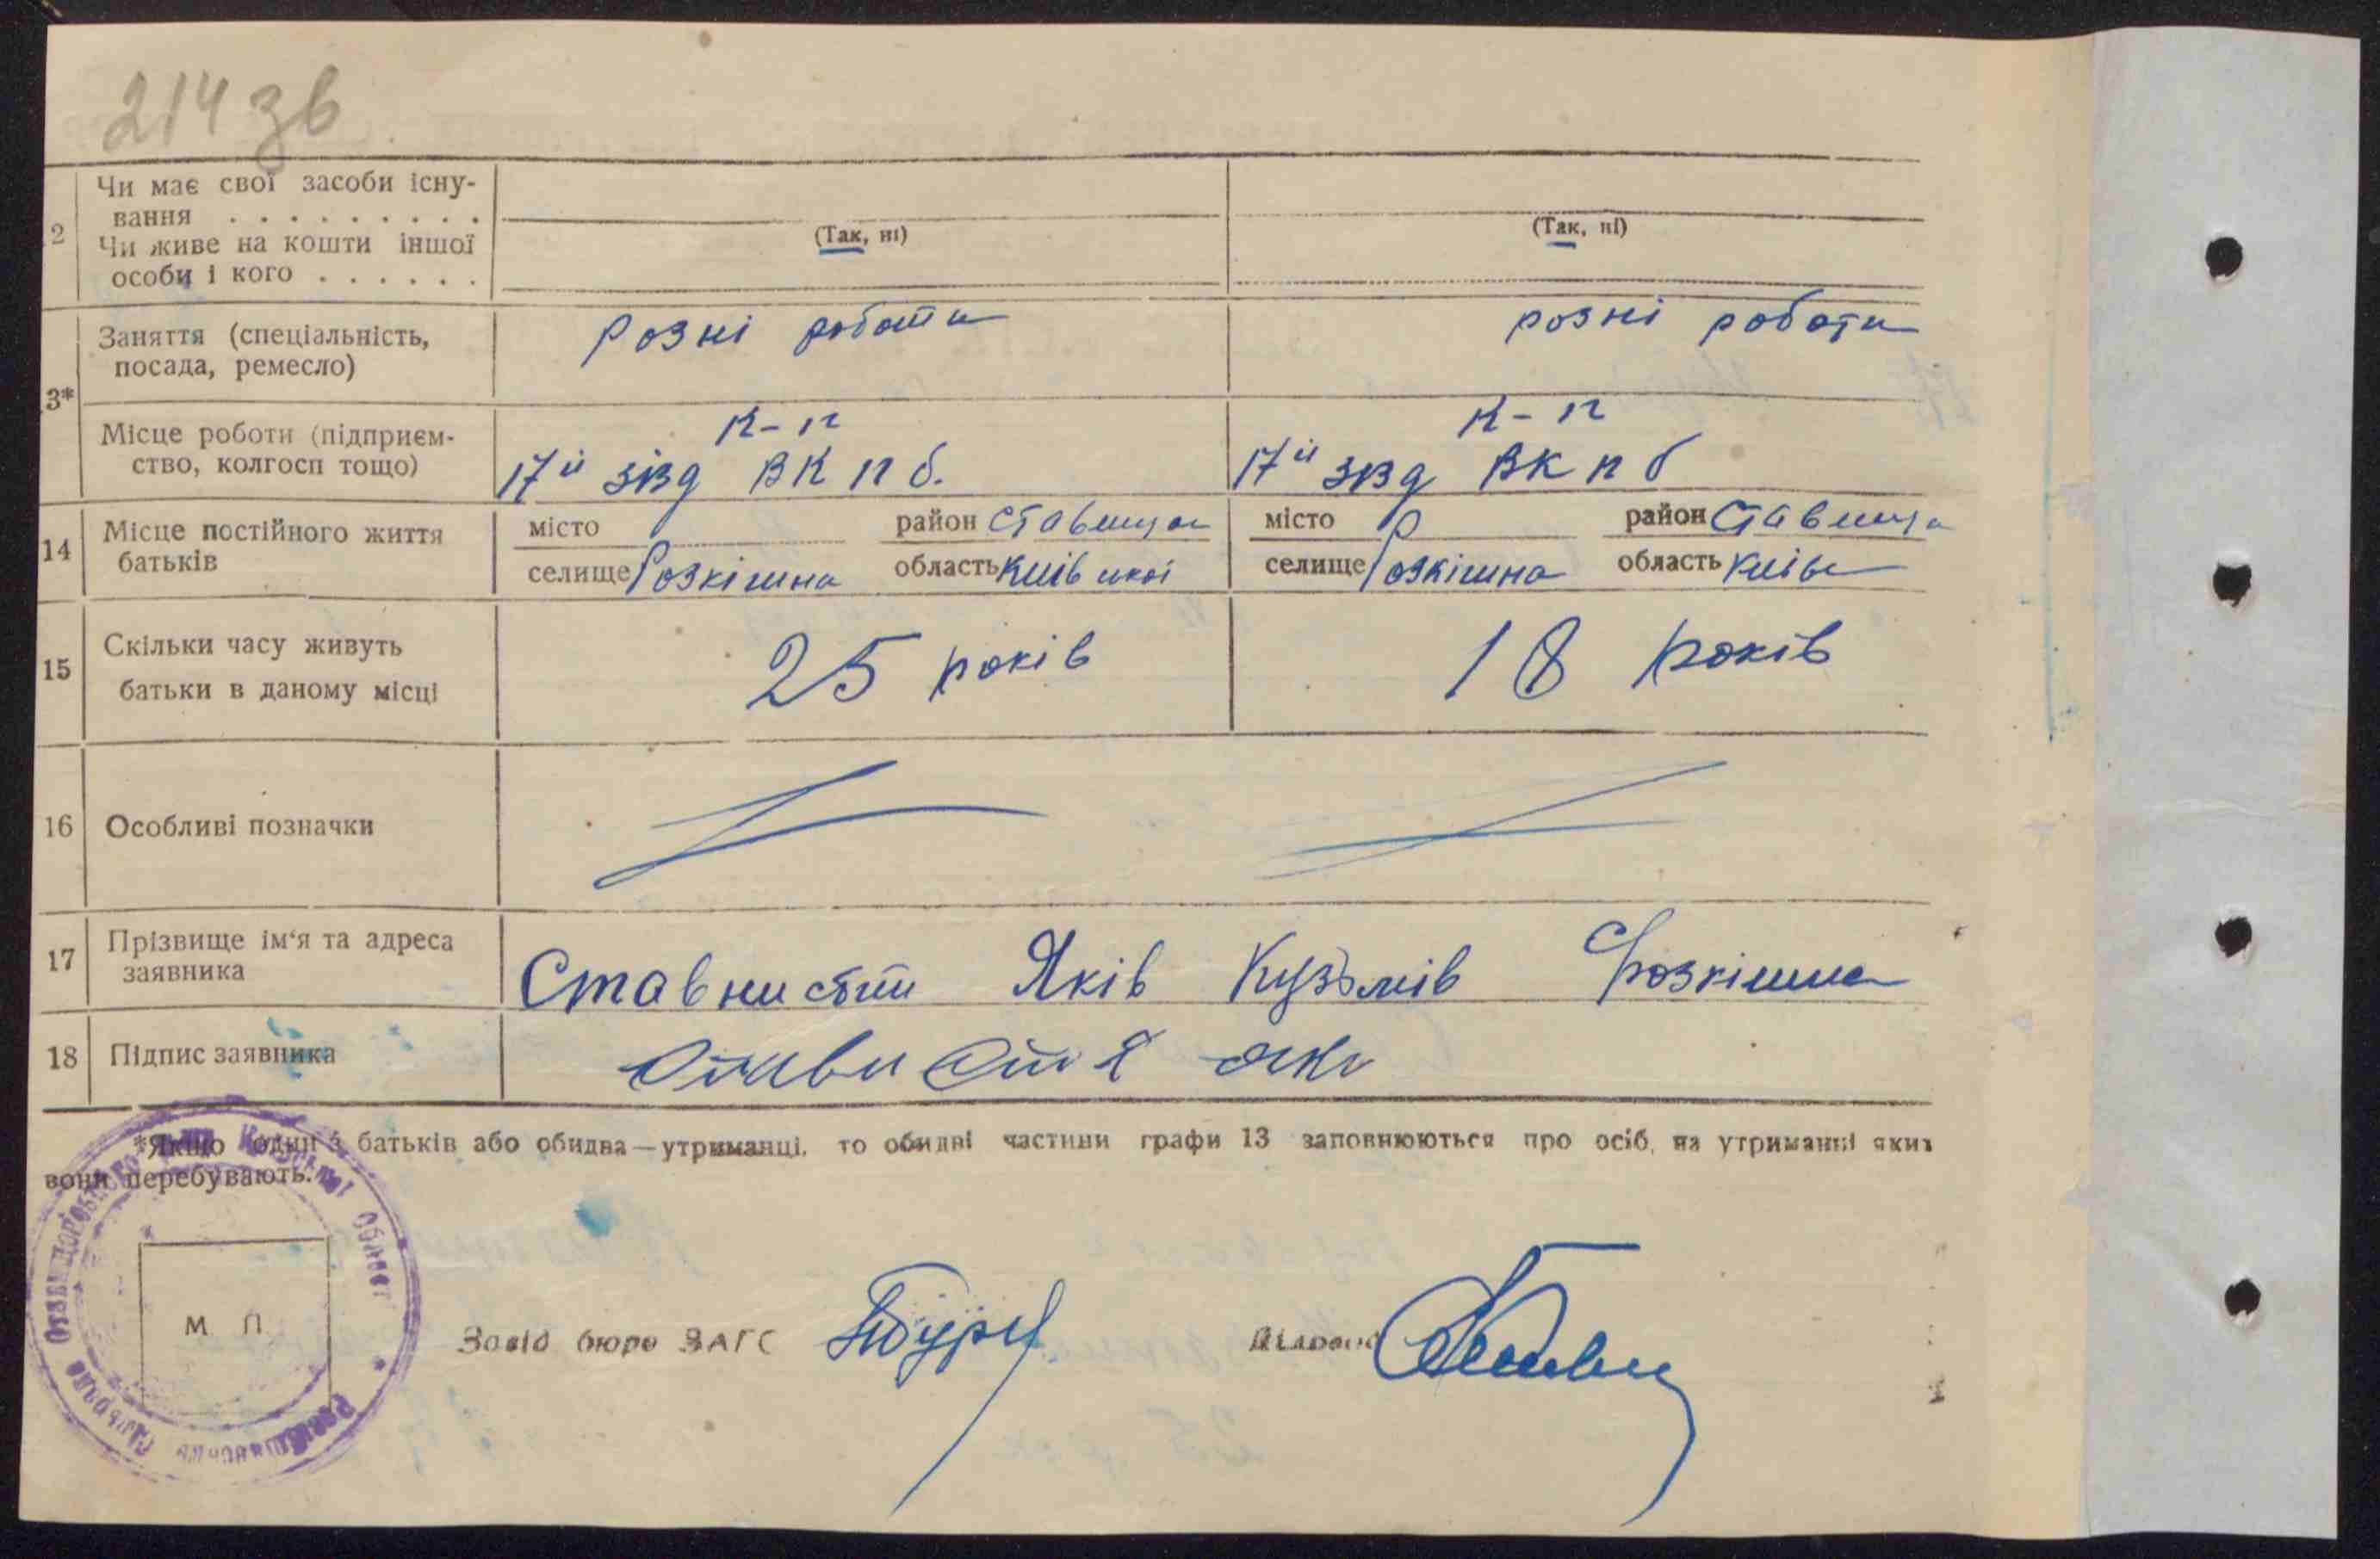 214 зв
2 Чи має свої засоби існу-
вання . . . . . . . . .
(Так, ні) (Так, ні)
Чи живе на кошти іншої
особи і кого . . . . . .
3*
Заняття (спеціальність, розні роботи розні роботи
посада, ремесло)
к-п к-п
Місце роботи (підприєм-
ство, колгосп тощо) 17й зізд ВК п б. 17й зізд ВК п б
14 Місце постійного життя місто район Ставища місто район Ставища
батьків селище Розкішна область Київської селище Розкішна область Київс
15 Скільки часу живуть
батьки в даному місці 25 років 18 років
16 Особливі позначки
17 Прізвище ім'я та адреса
заявника Ставнистий Яків Кузьмів Розкішна
18 Підпис заявника
*Якщо один з батьків або обидва—утриманці, то обидві частини графи 13 заповнюються про осіб, на утриманні яких
вони перебувають.
М П
Завід бюро ЗАГС Діловод